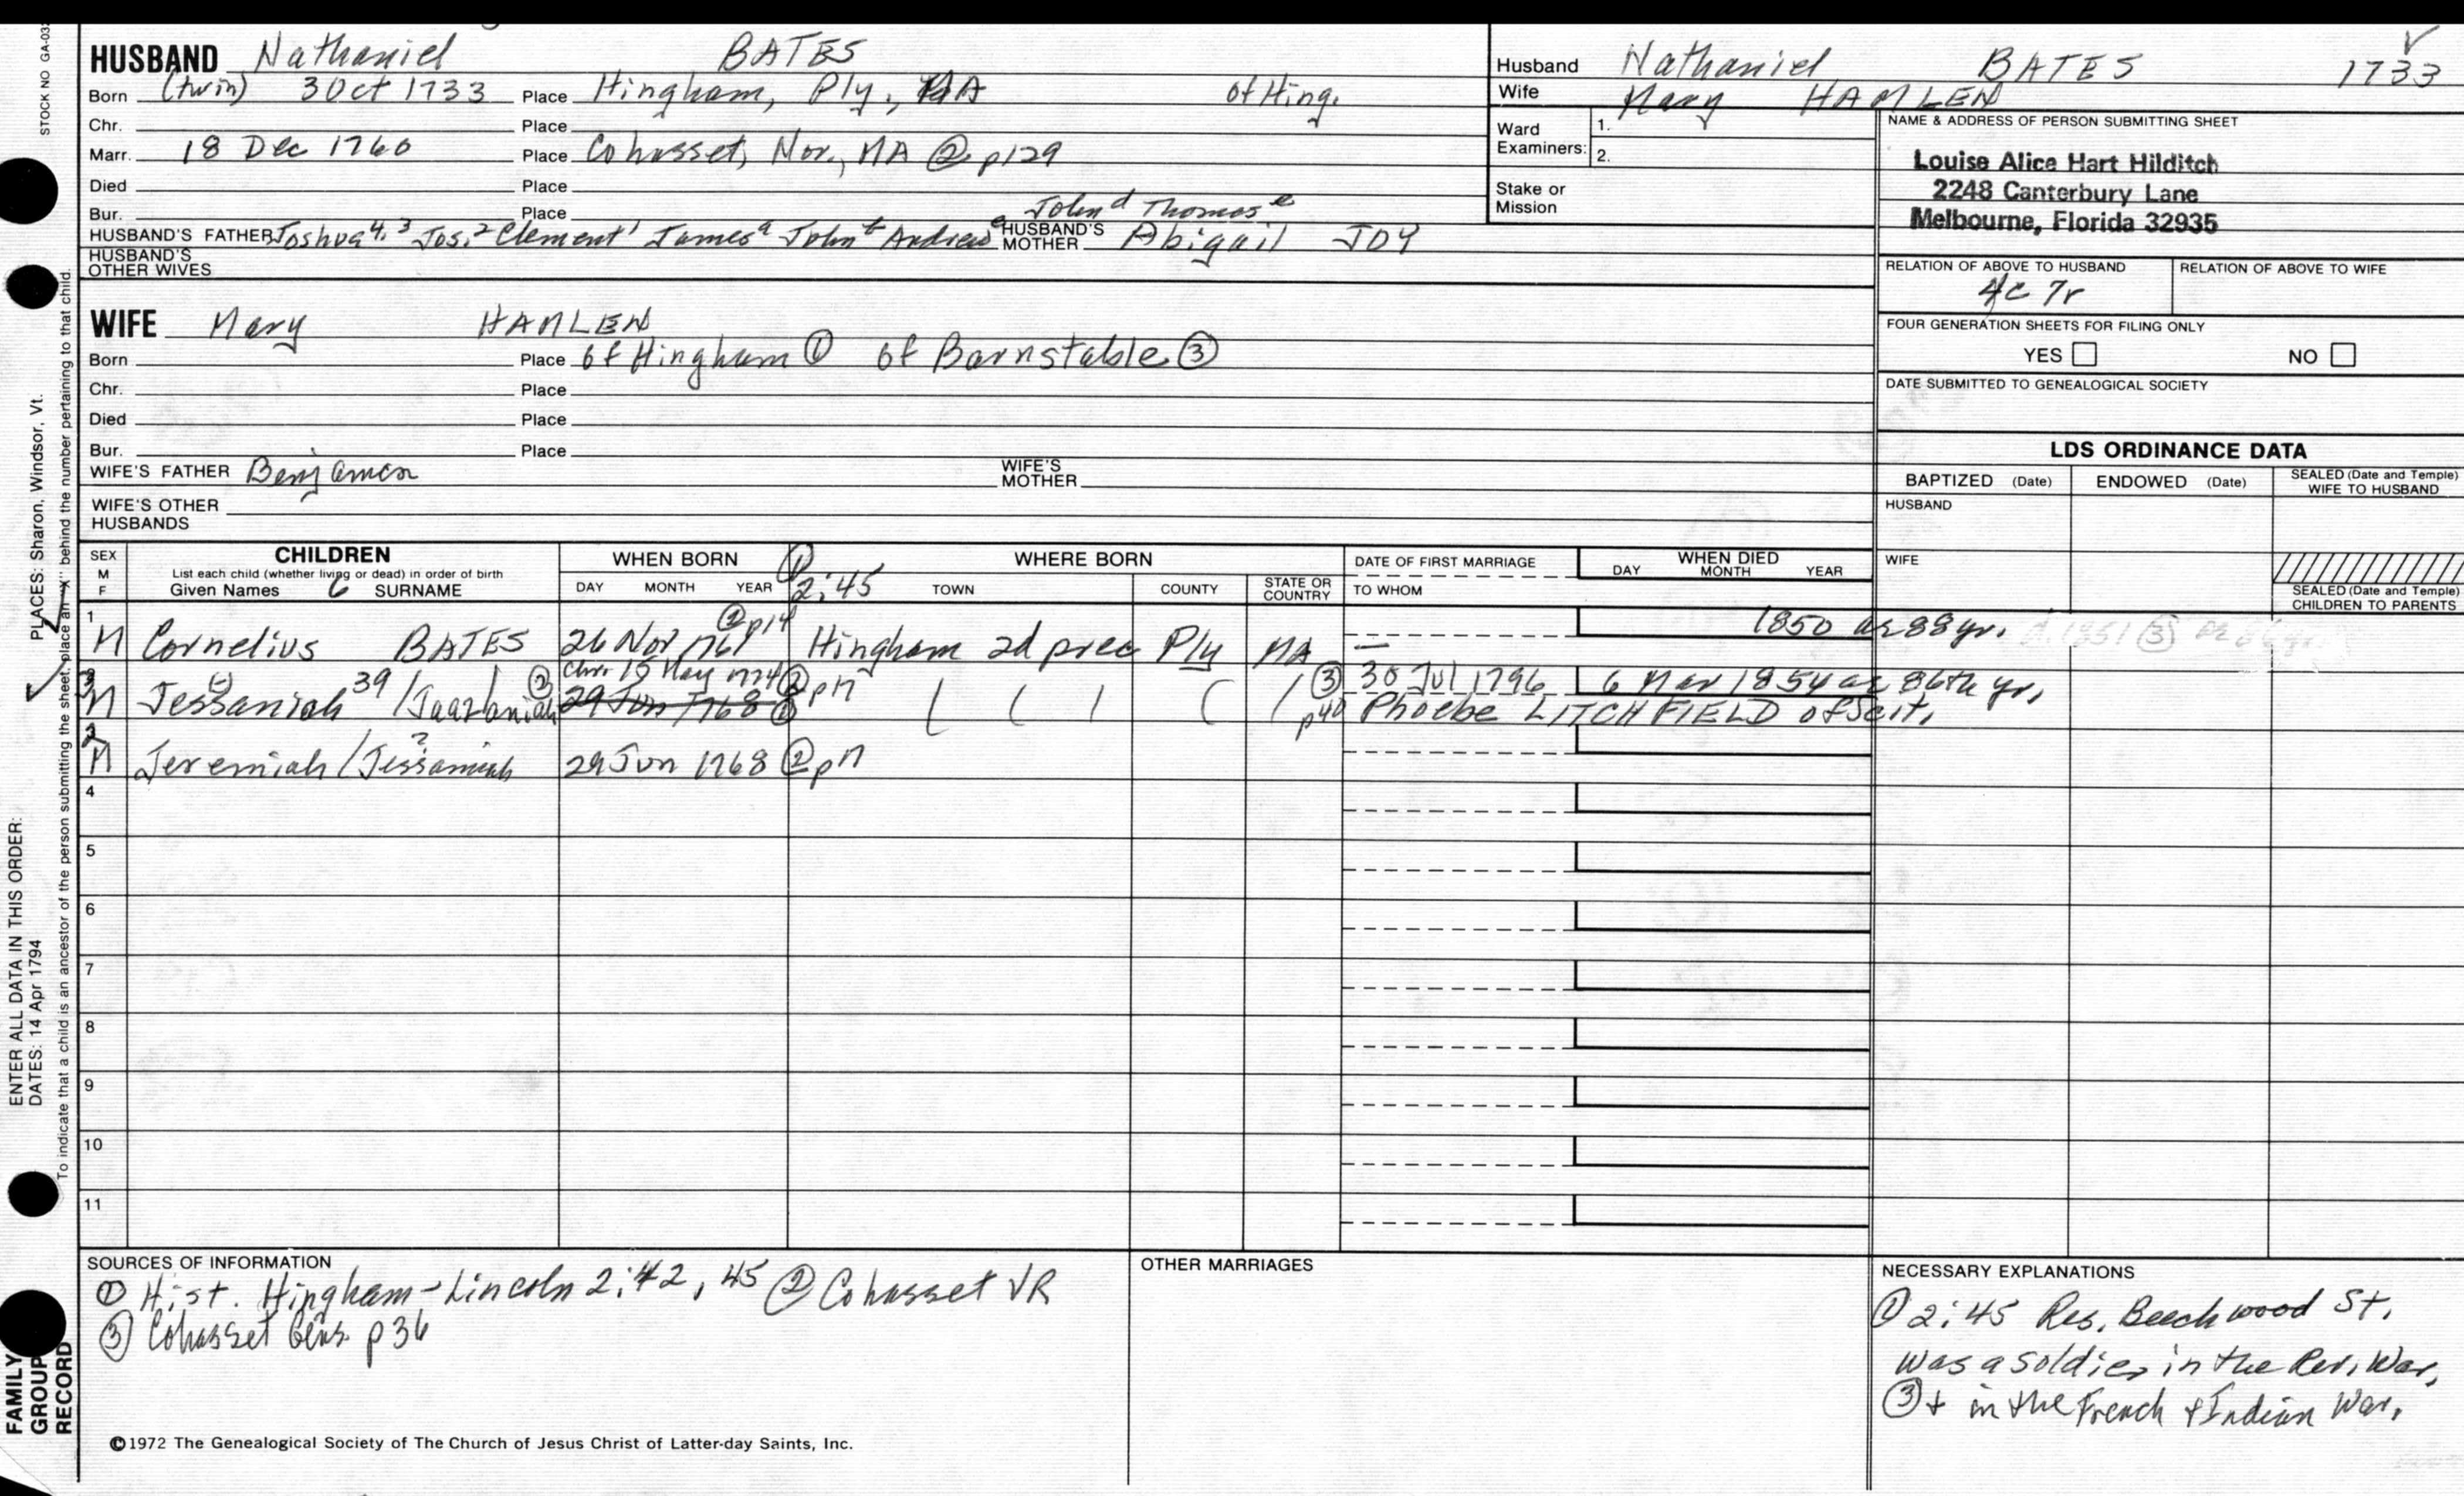 STOCK NO GA-03
HUSBAND Nathaniel BATES
Born (twin) 3 Oct 1733 Place Hingham, Ply., MA of Hing.
Chr. Place
Marr. 18 Dec 1760 Place Cohasset, Nor., MA ② p129
Died Place
Bur. Place
John d Thomas e
HUSBAND'S FATHER Joshua 4, 3 Jos, 2 Clement 1 James a John b Andrew c HUSBAND'S MOTHER Abigail JOY
HUSBAND'S OTHER WIVES
Husband Nathaniel BATES 1733
Wife Mary HAMLEN
Ward Examiners: 1.
2.
Stake or Mission
NAME & ADDRESS OF PERSON SUBMITTING SHEET
Louise Alice Hart Hilditch
2248 Canterbury Lane
Melbourne, Florida 32935
RELATION OF ABOVE TO HUSBAND RELATION OF ABOVE TO WIFE
4c 7r
FOUR GENERATION SHEETS FOR FILING ONLY
YES NO
DATE SUBMITTED TO GENEALOGICAL SOCIETY
WIFE Mary HAMLEN
Born Place of Hingham ① of Barnstable ③
Chr. Place
Died Place
Bur. Place
WIFE'S FATHER Benjamen WIFE'S MOTHER
WIFE'S OTHER HUSBANDS
LDS ORDINANCE DATA
BAPTIZED (Date) ENDOWED (Date) SEALED (Date and Temple) WIFE TO HUSBAND
HUSBAND
WIFE
SEALED (Date and Temple) CHILDREN TO PARENTS
SEX M F CHILDREN WHEN BORN ① WHERE BORN DATE OF FIRST MARRIAGE WHEN DIED
List each child (whether living or dead) in order of birth
Given Names SURNAME DAY MONTH YEAR 2:45 TOWN COUNTY STATE OR COUNTRY TO WHOM DAY MONTH YEAR
1 ② p14 1850 ae 88 yr. d. 1851 ③
M Cornelius BATES 26 Nov 1761 Hingham 2d prec Ply MA —
Chr. 15 May 1774 ② p17 ③ 30 Jul 1796 6 Mar 1854 ae 86th yr.
M Jessaniah 39 / Jaazaniah ② 29 Jun 1768 ① p40 Phoebe LITCHFIELD of Scit.
M Jeremiah / Jessamiah ? 29 Jun 1768 ② p17
4
5
6
7
8
9
10
11
SOURCES OF INFORMATION
① Hist. Hingham-Lincoln 2:42, 45 ② Cohasset VR
③ Cohasset Gens. p36
OTHER MARRIAGES
NECESSARY EXPLANATIONS
① 2:45 Res. Beechwood St.
was a soldier in the Rev. War,
③ + in the French + Indian War.
©1972 The Genealogical Society of The Church of Jesus Christ of Latter-day Saints, Inc.
ENTER ALL DATA IN THIS ORDER:
DATES: 14 Apr 1794 PLACES: Sharon, Windsor, Vt.
To indicate that a child is an ancestor of the person submitting the sheet, place an "X" behind the number pertaining to that child.
FAMILY GROUP RECORD